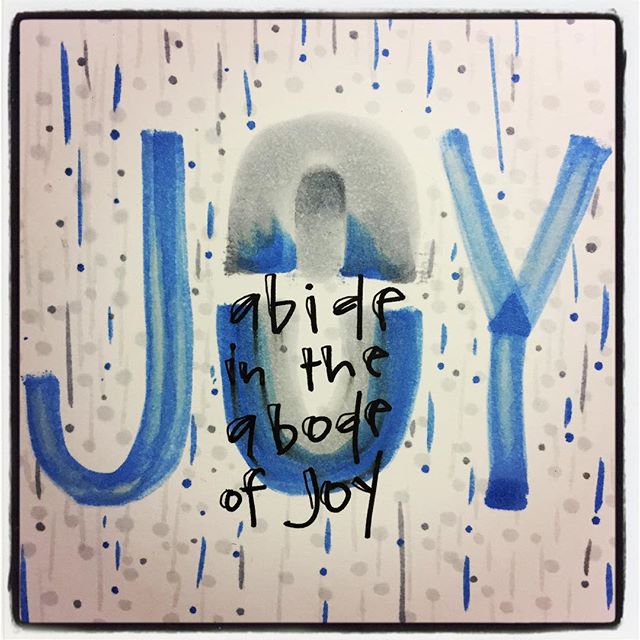 JOY
abide
in the
abode
of JOY